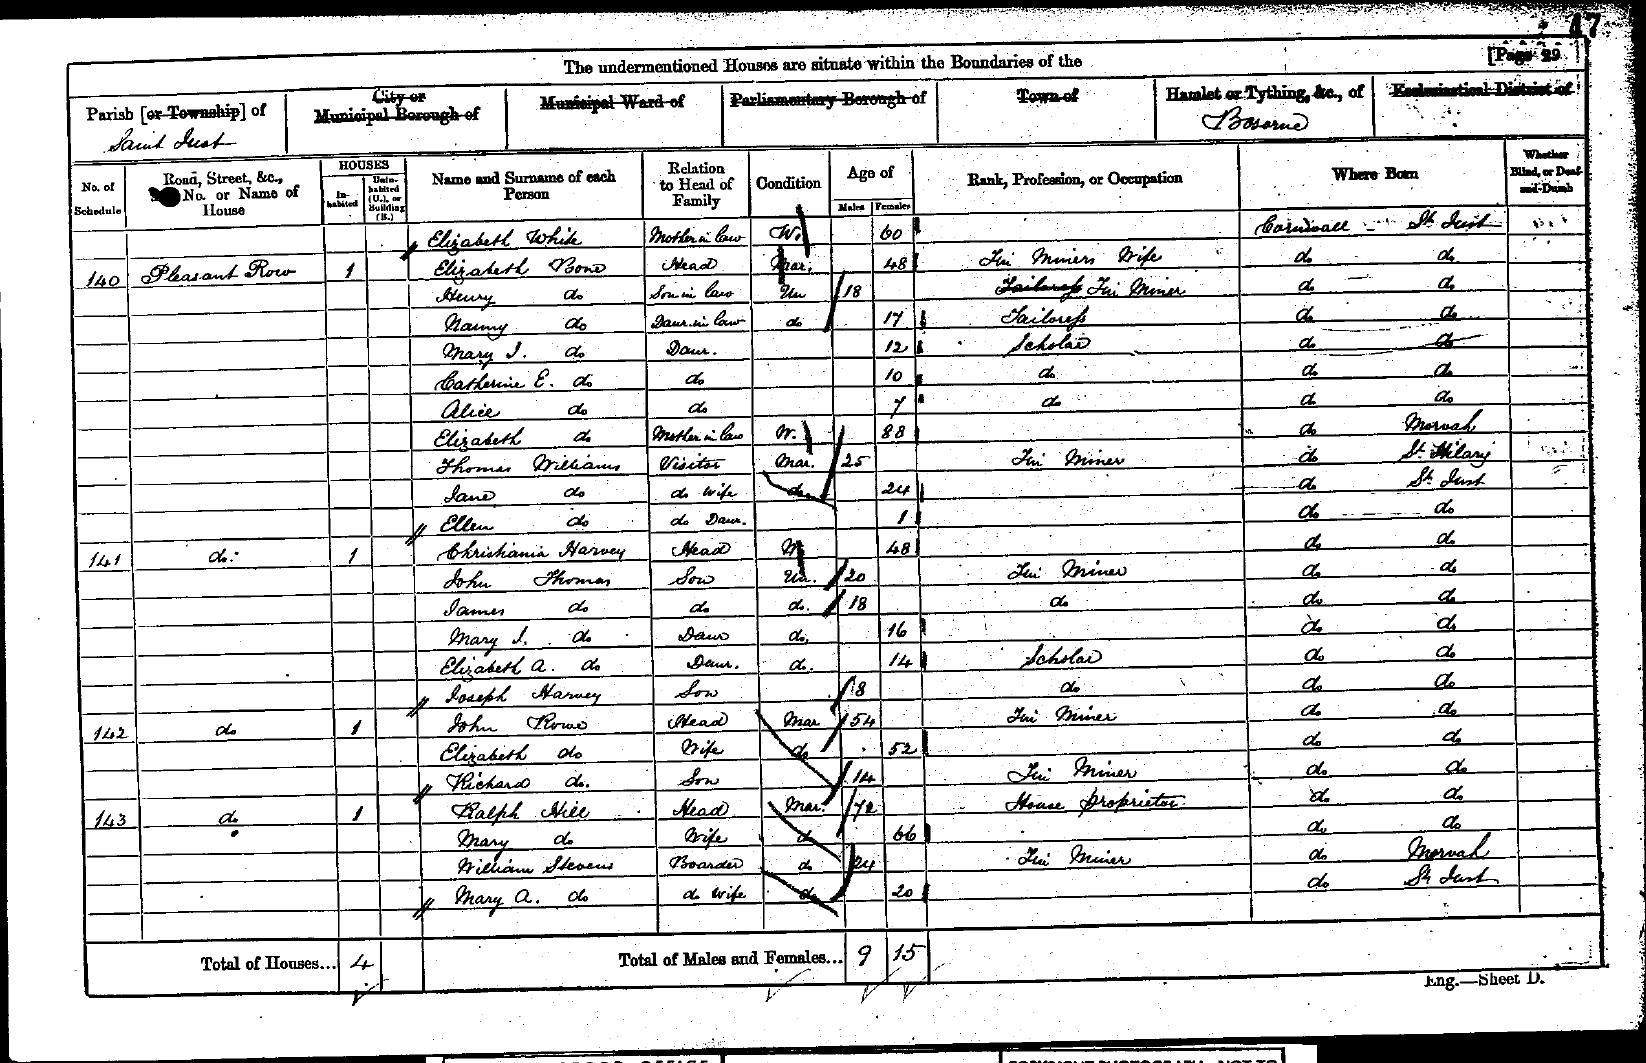 47
[Page 29
The undermentioned Houses are situate within the Boundaries of the
Parish [or Township] of Saint Just
City or Municipal Borough of
Municipal Ward of
Parliamentary Borough of
Town of
Hamlet or Tything, &c., of Bosorne
Ecclesiastical District of
No. of Schedule
Road, Street, &c., No. or Name of House
HOUSES
Inhabited
Uninhabited (U.), or Building (B.)
Name and Surname of each Person
Relation to Head of Family
Condition
Age of
Males
Females
Rank, Profession, or Occupation
Where Born
Whether Blind, or Deaf-and-Dumb
Elizabeth White Mother in law W. 60 Cornwall St Just
140 Pleasant Row 1 Elizabeth Bone Head Mar. 48 Tin Miners Wife do do
Henry do Son in law Un 18 Tailoress Tin Miner do do
Nanny do Daur. in law do 17 Tailoress do do
Mary J. do Daur. 12 Scholar do do
Catherine E. do do 10 do do do
Alice do do 7 do do do
Elizabeth do Mother in law W. 88 do Morvah
Thomas Williams Visitor Mar. 25 Tin Miner do St Hilary
Jane do do Wife do 24 do St Just
Ellen do do Daur. 1 do do
141 do. 1 Christiania Harvey Head W 48 do do
John Thomas Son Un. 20 Tin Miner do do
James do do do. 18 do do do
Mary J. do Daur do. 16 do do
Elizabeth A. do Daur. do. 14 Scholar do do
Joseph Harvey Son 8 do do do
142 do 1 John Rowe Head Mar 54 Tin Miner do do
Elizabeth do Wife do 52 do do
Richard do. Son 14 Tin Miner do do
143 do 1 Ralph Hill Head Mar. 72 House proprietor do do
Mary do Wife do 66 do do
William Stevens Boarder do 24 Tin Miner do Morvah
Mary A. do do Wife do 20 do St Just
Total of Houses... 4 Total of Males and Females... 9 15
Eng.—Sheet D.